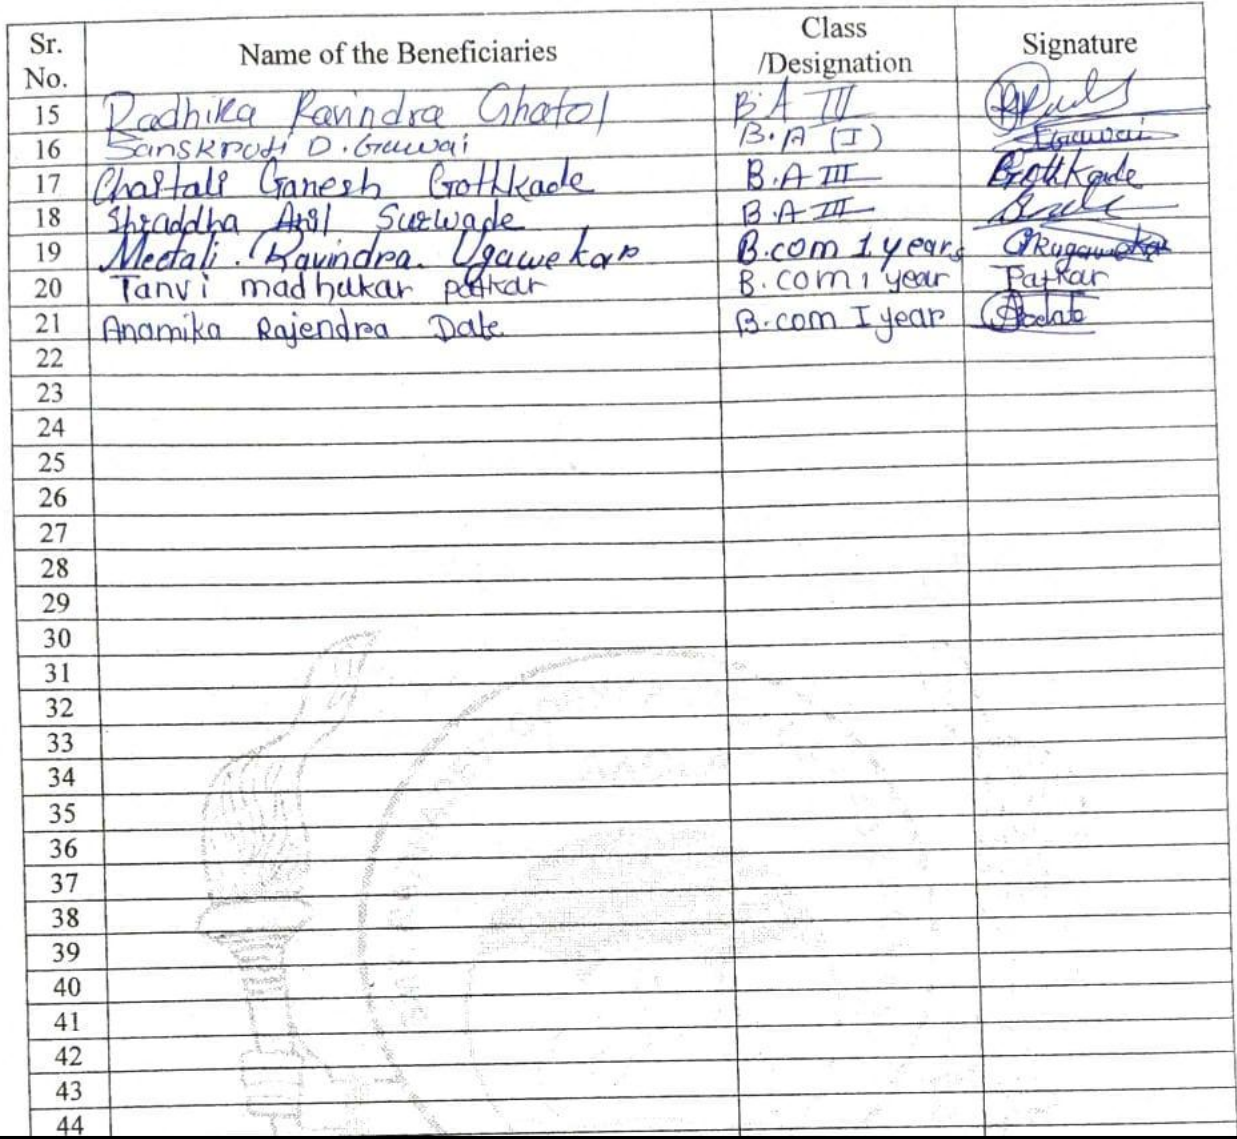 Sr. No. Name of the Beneficiaries Class /Designation Signature
15 Radhika Ravindra Ghatol B.A III
16 Sanskruti D. Gawai B.A (I) Gawai
17 Chaitali Ganesh Gothkade B.A III Gothkade
18 Shraddha Anil Surwade B.A III
19 Meetali. Ravindra. Ugawekar B.com 1 years
20 Tanvi madhukar patkar B.com 1 year Patkar
21 Anamika Rajendra Date B.com I year
22
23
24
25
26
27
28
29
30
31
32
33
34
35
36
37
38
39
40
41
42
43
44